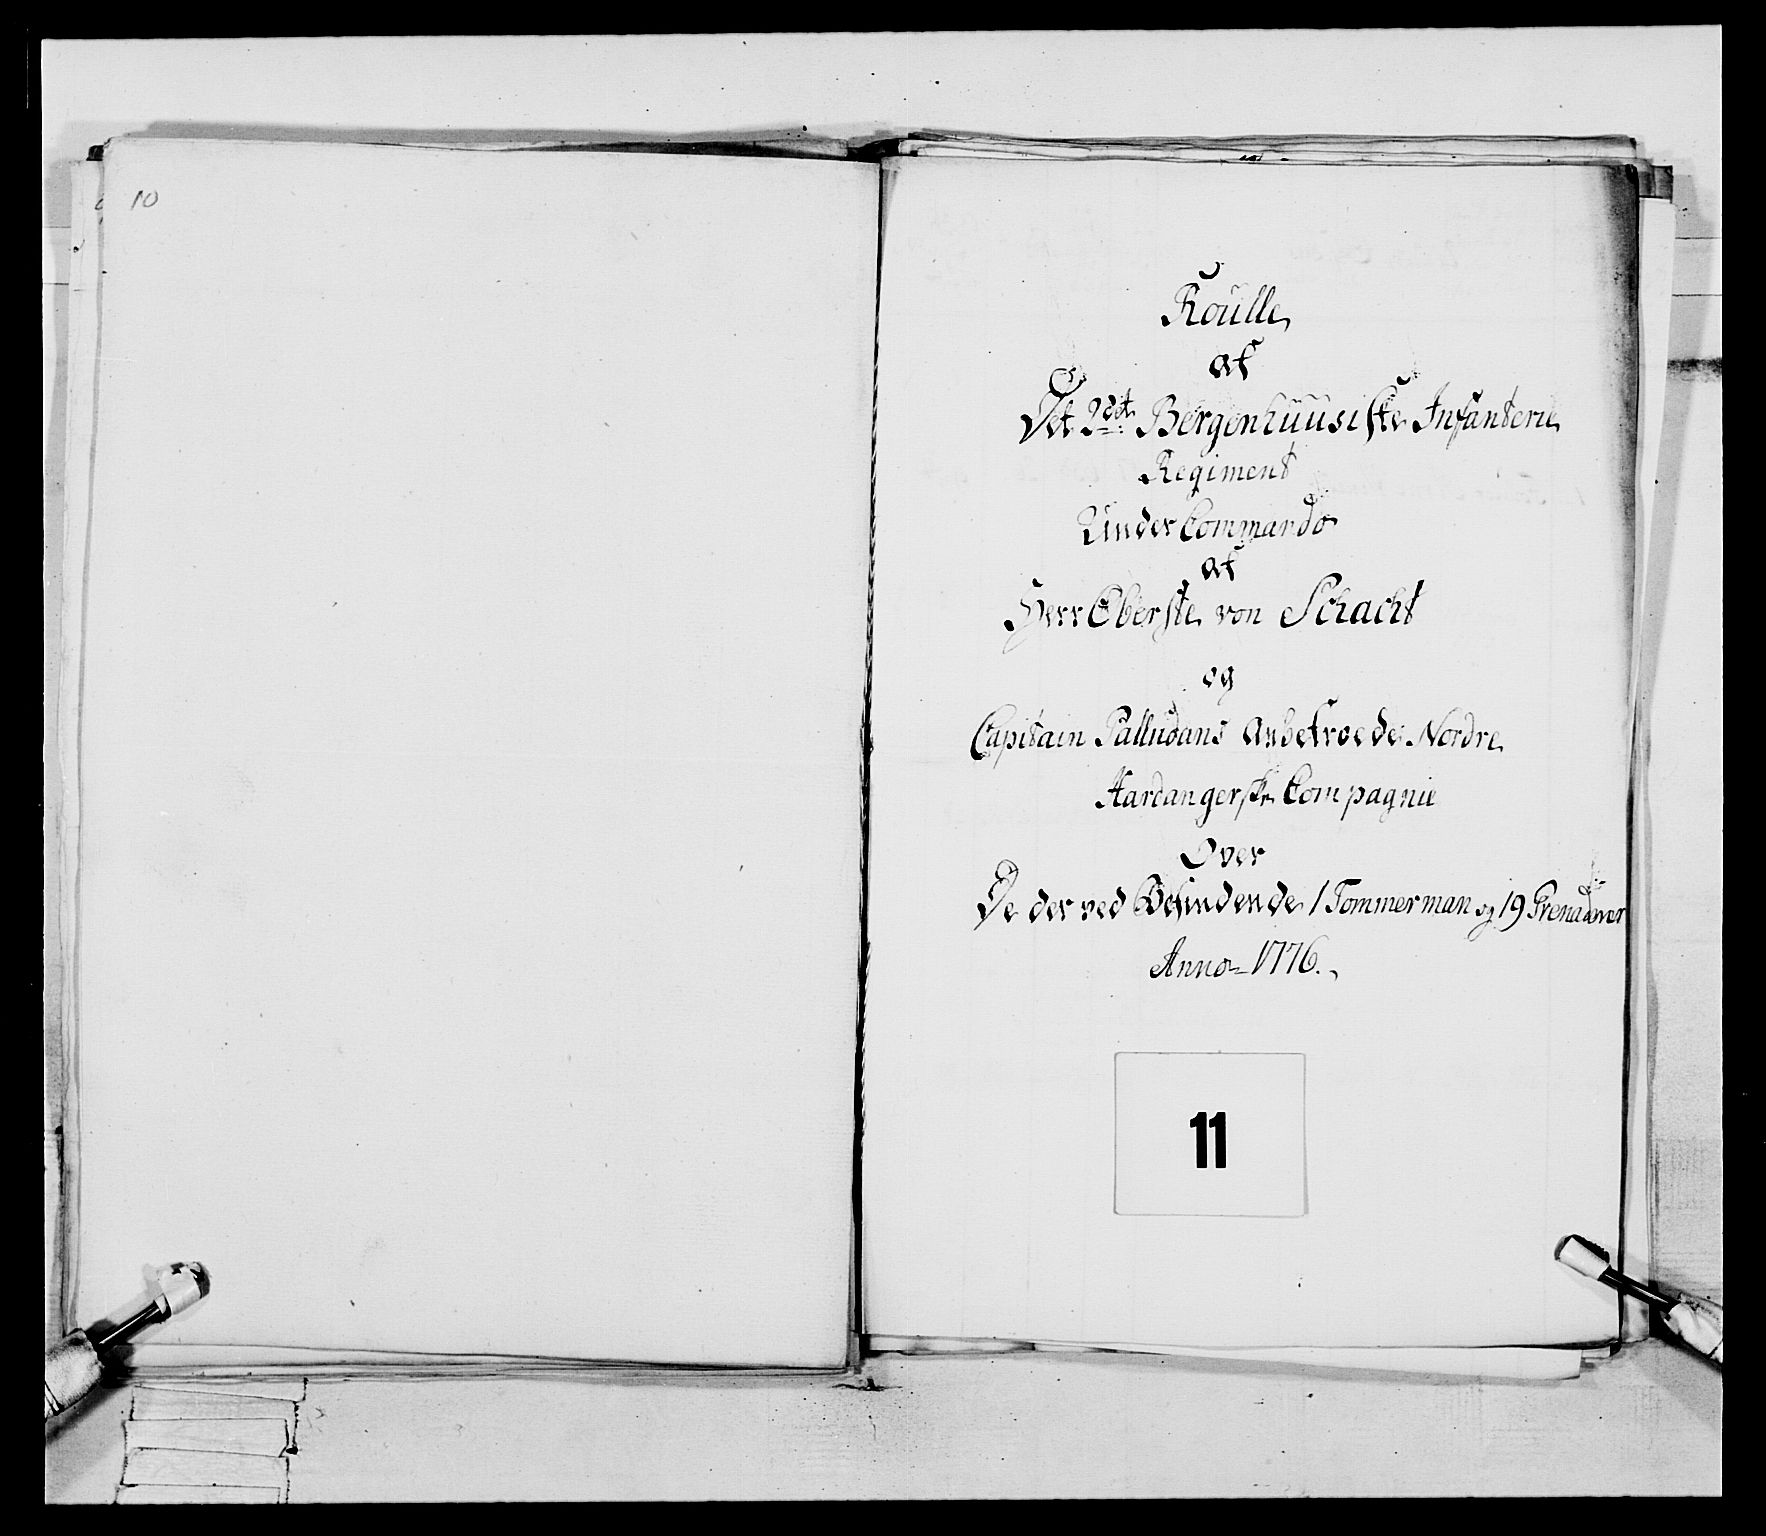 10
Roulle
af
Det 2det Bergenhuusiske Infanterie
Regiment
Under Commando
af
Herr Oberste von Schacht
og
Capitain Palludans Anbetroede Nordre
Hardangerske Compagnie
Over
De der ved Befindende 1 Tommerman og 19 Grenaderer
Anno 1776.
11